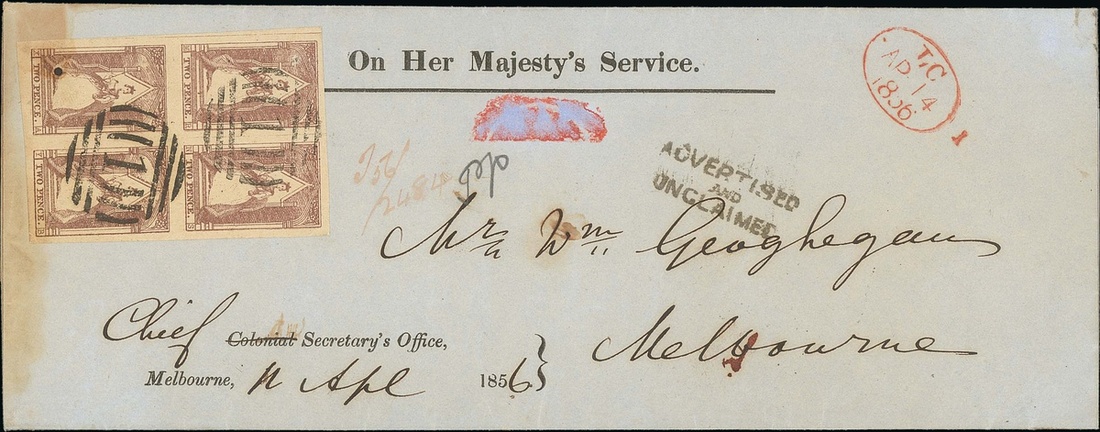 TWO PENCE.
TWO PENCE.
TWO PENCE.
TWO PENCE.
1
1
On Her Majesty's Service.
V.C
AP 14
1856
1
ADVERTISED
AND
UNCLAIMED
2484
Mr Wm Geoghegan
Chief Colonial Secretary's Office,
Melbourne
Melbourne, 11 Apl 1856